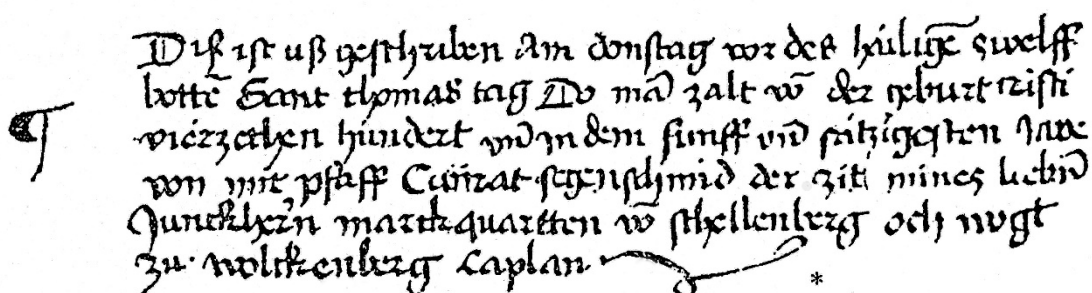 Diß ist uß geschriben Am donstag vor des hailigē zwelff
bottē Sant thomas tag Do mā zalt vō der geburt cristi
vierzechen hundert vn̄ in dem funff vn̄ sibtzigesten Jare
von mir pfaff Cůnrat segenschmid der zitt mines liebn̄
Junckhern marckquartten vō schellenberg och vogt
zu wolckenberg Caplan *